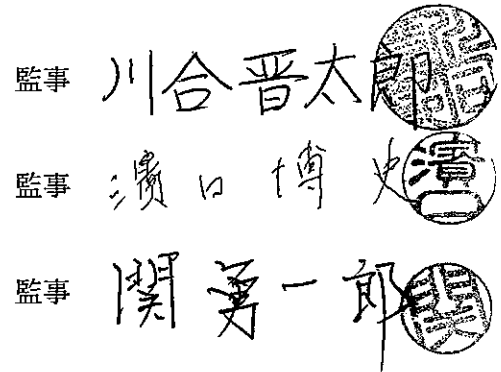 監事 川合晋太郎
監事 濱口博史 濱口
監事 関勇一郎 関